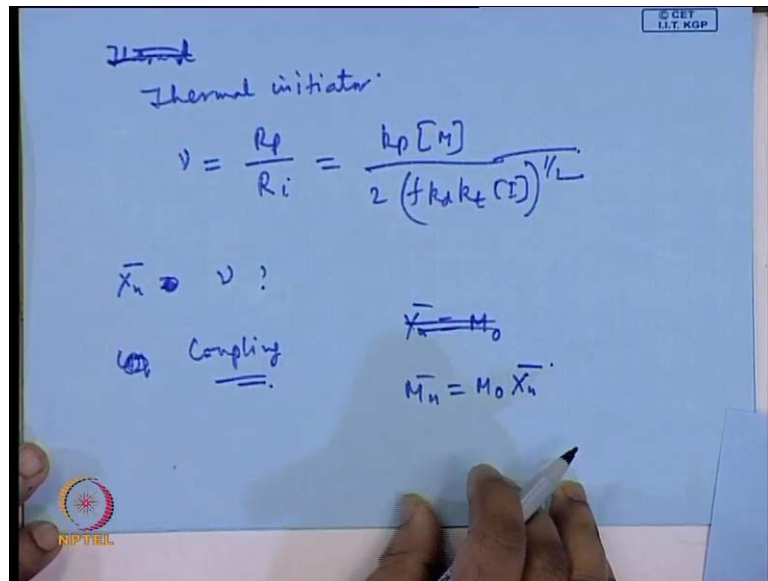 © CET
I.I.T. KGP
Thermal initiator
ν = Rp / Ri = kp [M] / 2 (f kd kt [I])^1/2
X̄n ν ?
X̄n = M0
Coupling
M̄n = M0 X̄n
NPTEL